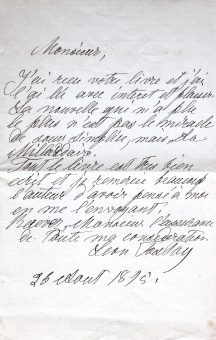 Monsieur,
J'ai reçu votre livre et j'ai
l'ai lu avec intérêt et plaisir.
La nouvelle qui m'a plu
le plus n'est pas le miracle
mais La
Tout le livre est très bien
écrit et je remercie beaucoup
l'auteur d'avoir pensé à moi
en me l'envoyant.
Recevez, Monsieur l'assurance
de toute ma considération
Léon Tolstoy
26 Août 1895.